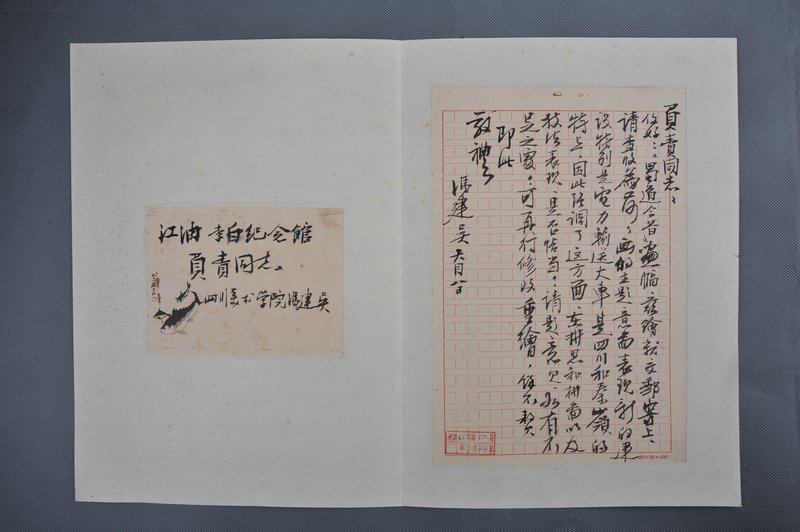 江油李白纪念馆
负责同志。
四川美术学院冯建吴
负责同志：
您好：“蜀道今昔”画幅，兹绘就交邮寄上、
请查收为荷，画的主题意图表现新的建
设特别是电力输送火车是四川和秦岭的
特点，因此强调了这方面，在构思和构图以及
技法表现，是否恰当，请题意见，如有不
足之处，可再行修改重绘，余不赘
即此
敬礼
冯建吴 六月
20×20=400